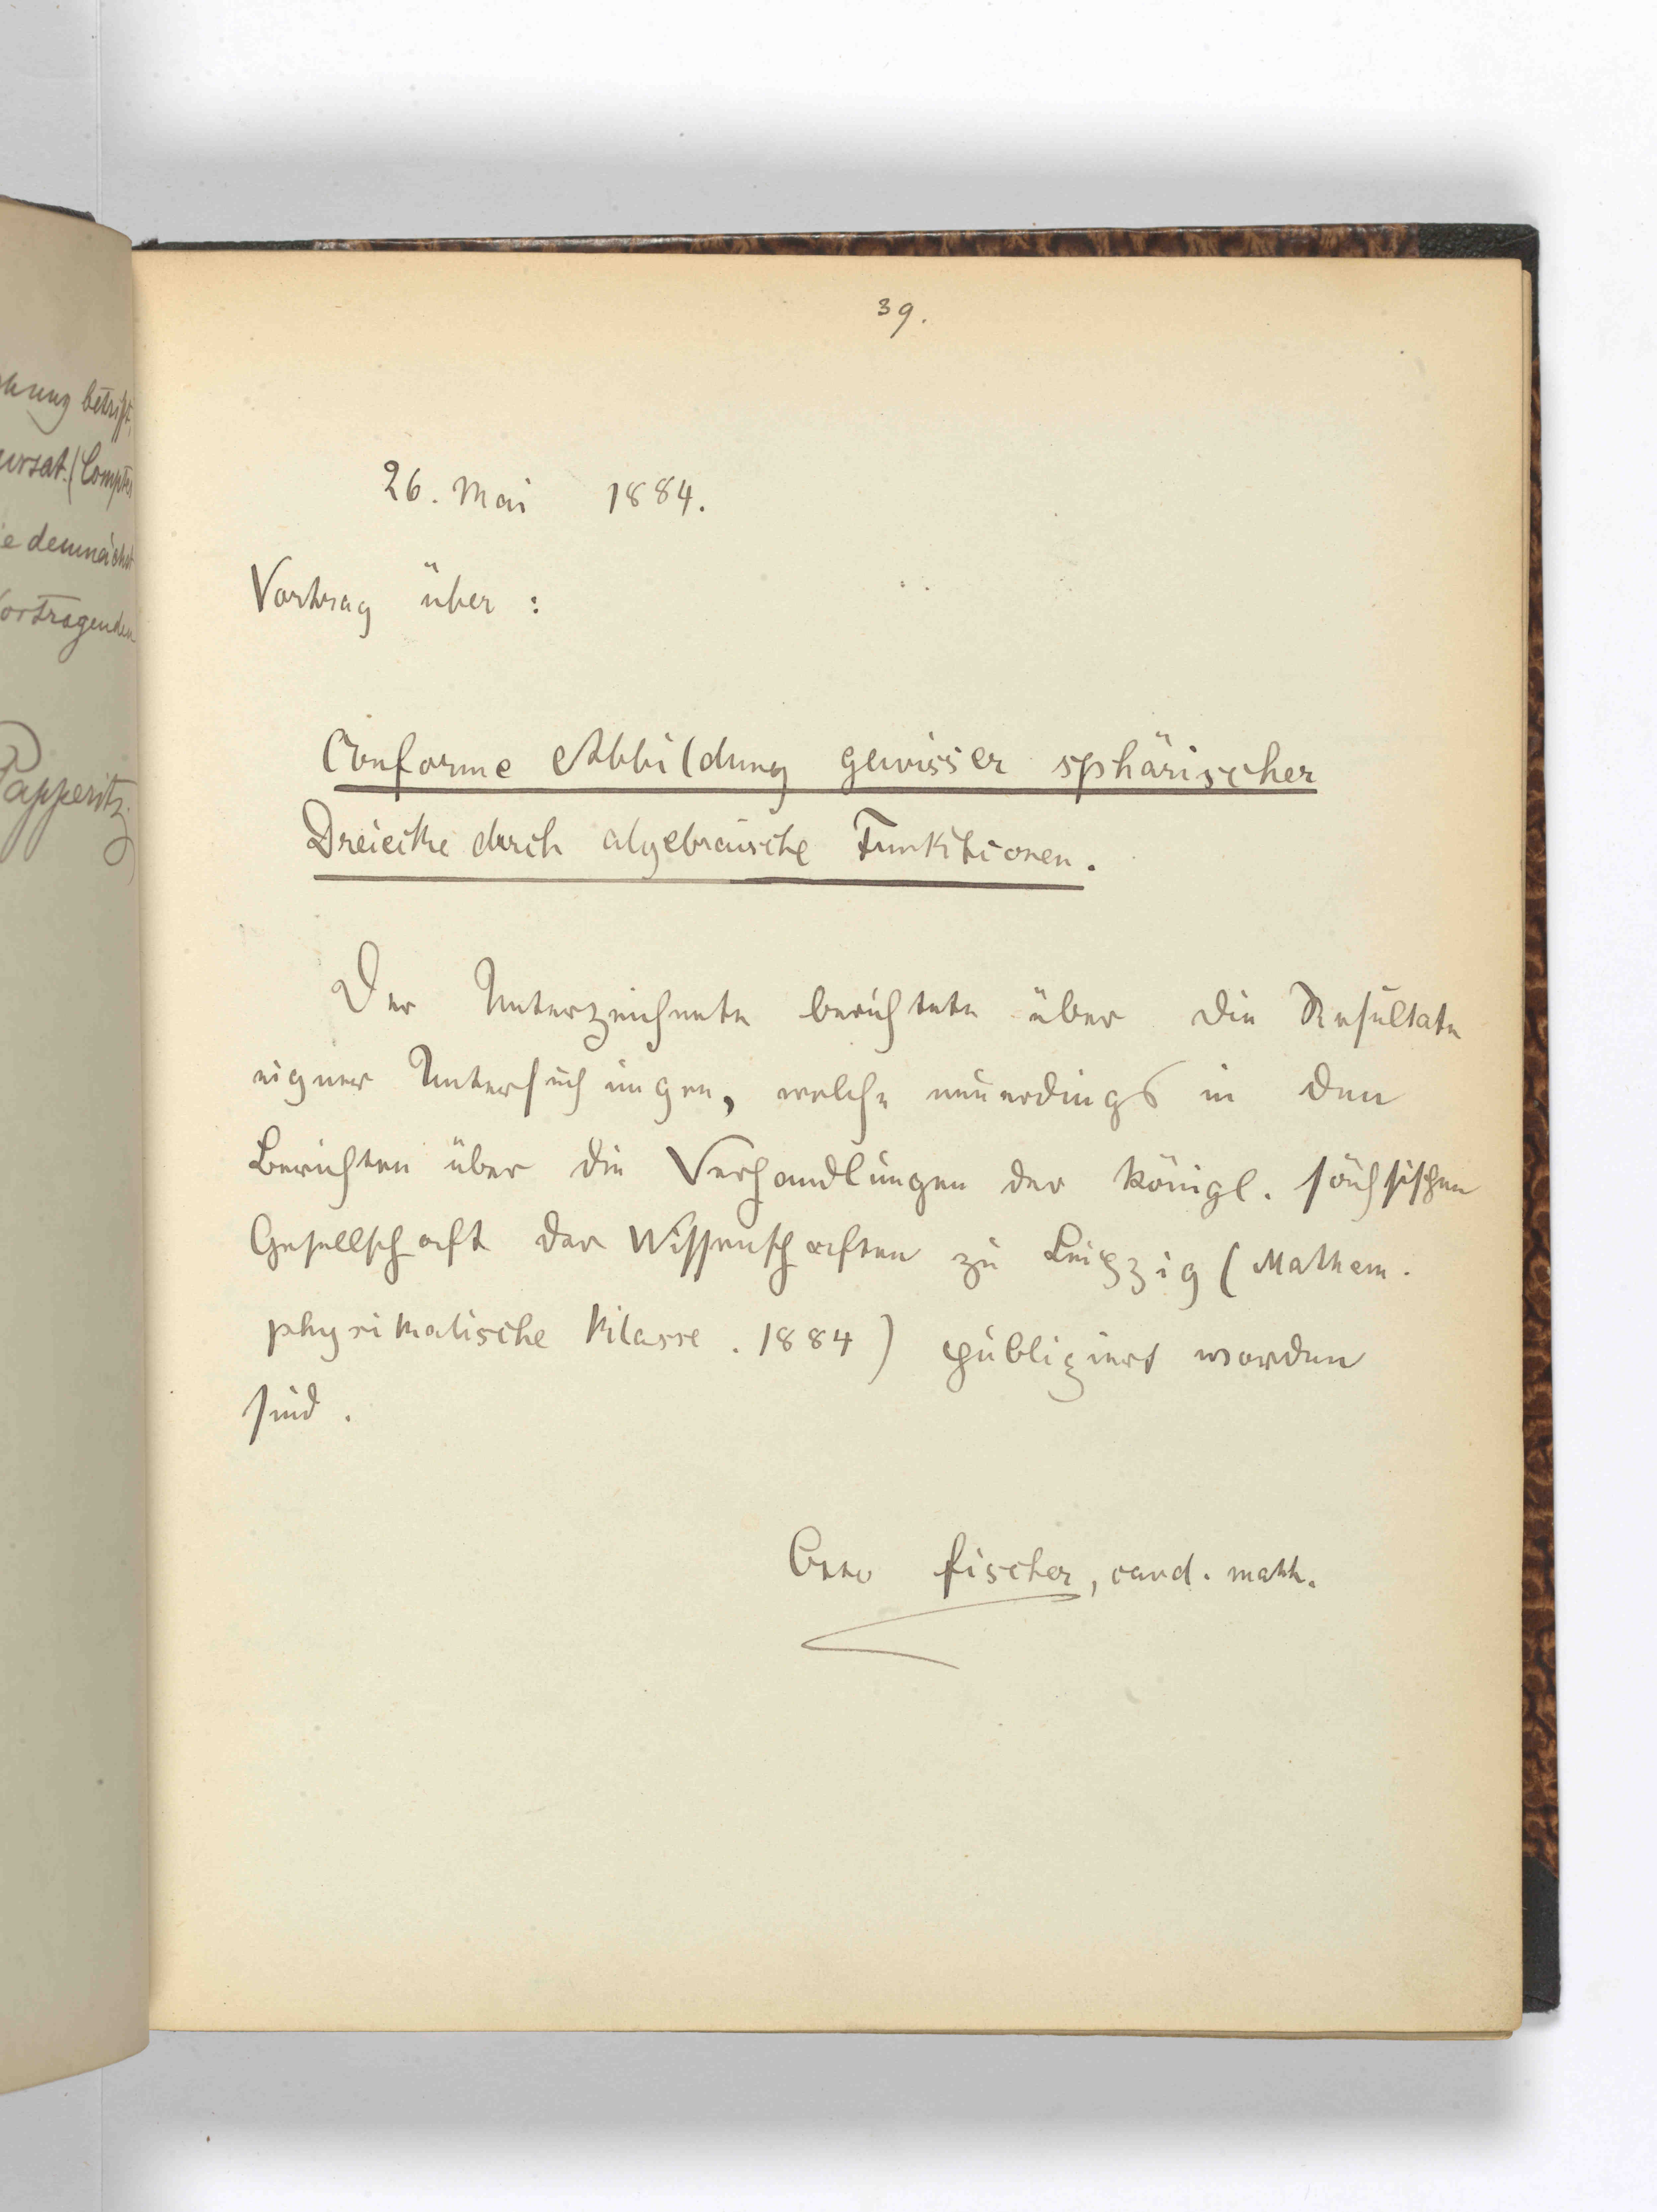 hung betrifft,
ursat. (Comptes
ie demnächst
Vortragenden
Papperitz.
39.
26. Mai 1884.
Vortrag über:
Conforme Abbildung gewisser sphärischer
Dreiecke durch algebraische Funktionen.
Der Unterzeichnete berichtete über die Resultate
eigner Untersuchungen, welche neuerdings in den
Berichten über die Verhandlungen der Königl. sächsischen
Gesellschaft der Wissenschaften zu Leipzig (Mathem.
physikalische Klasse. 1884) publiziert worden
sind.
Otto Fischer, cand. math.